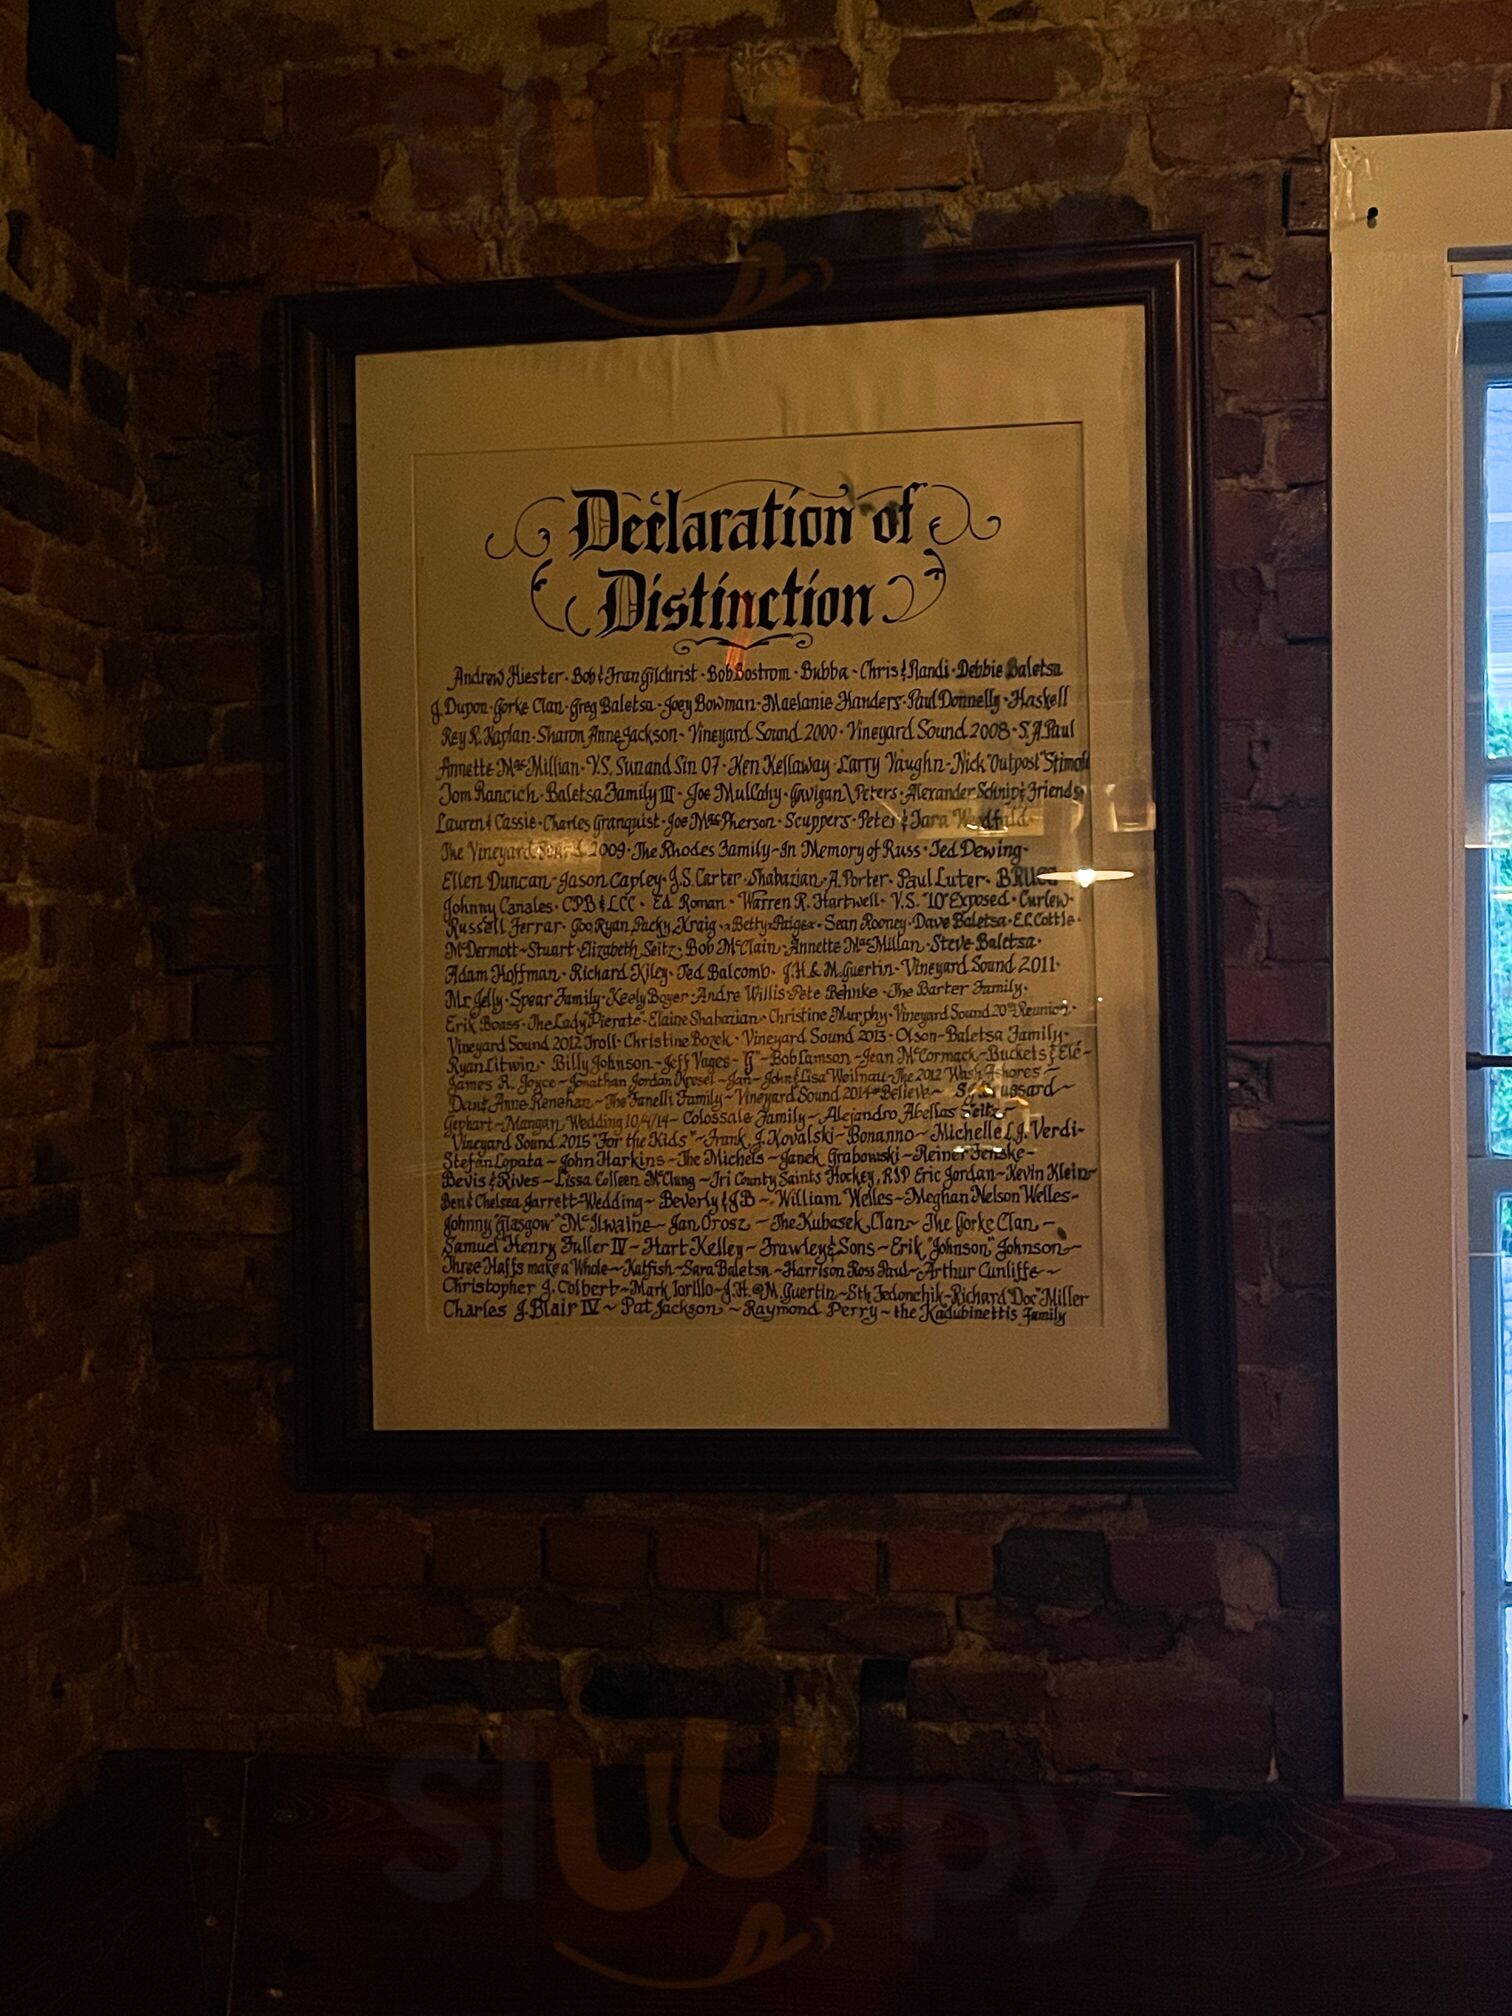 Declaration of
Distinction
Andrew Hiester · Bob & Fran Gilchrist · Bob Bostrom · Bubba · Chris & Randi · Debbie Baletsa
J. Dupon · Gorke Clan · Greg Baletsa · Joey Bowman · Maelanie Handers · Paul Donnelly · Haskell
Rey R. Kaplan · Sharon Anne Jackson · Vineyard Sound 2000 · Vineyard Sound 2008 · S.A. Paul
Annette MacMillian · V.S. Sun and Sin 07 · Ken Kellaway · Larry Vaughn · Nick "Outpost"
Tom Rancich · Baletsa Family III · Joe Mulcahy · Gwigan\Peters · Alexander Schnip & Friends
Lauren & Cassie · Charles Granquist · Joe MacPherson · Scuppers · Peter & Tara
The Vineyard 2009 · The Rhodes Family - In Memory of Russ · Ted Dewing ·
Ellen Duncan · Jason Capley · J.S. Carter · Shabazian · A. Porter · Paul Luter ·
Johnny Canales · CPB & LCC · Ed Roman · Warren R. Hartwell · V.S. "10" Exposed · Curlew ·
Russell Ferrar · Goo Ryan Packy Kraig · Betty Paige · Sean Rooney · Dave Baletsa · E.C. Cottle ·
McDermott - Stuart · Elizabeth Seitz · Bob McClain · Annette MacMillan · Steve Baletsa ·
Adam Hoffman · Richard Kiley · Ted Balcomb · J.H. & M. Guertin · Vineyard Sound 2011 ·
Mr. Jelly · Spear Family · Keely Boyer · Andre Willis · Pete Behnke · The Barter Family ·
Erik Boass · The Lady "Pierate" · Elaine Shabazian · Christine Murphy · Vineyard Sound 20th Reunion ·
Vineyard Sound 2012 Troll · Christine Bozek · Vineyard Sound 2013 · Olson-Baletsa Family ·
Ryan Litwin · Billy Johnson ~ Jeff Vages ~ ~ Bob Lamson ~ Jean McCormack ~ Buckets & Ele ~
James R. Joyce ~ Jonathan Jordan Kresel ~ Jan ~ John & Lisa Weilnau ~ The 2012 Wash Ashores ~
Dan & Anne Renehan ~ The Fanelli Family ~ Vineyard Sound 2014 #Believe ~
Gephart ~ Mangan Wedding 10/4/14 ~ Colossale Family ~ Alejandro Abellas Seitz ~
Vineyard Sound 2015 "For the Kids" ~ Frank J. Kovalski ~ Bonanno ~ Michelle L.J. Verdi ~
Stefan Lopata ~ John Harkins ~ The Michels ~ Janek Grabowski ~ Reiner Fenske ~
Bevis & Rives ~ Lissa Colleen McClung ~ Tri County Saints Hockey, RIP Eric Jordan ~ Kevin Klein ~
Ben & Chelsea Jarrett Wedding ~ Beverly & JB ~ William Welles ~ Meghan Nelson Welles ~
Johnny "Glasgow" McIlwaine ~ Jan Orosz ~ The Kubasek Clan ~ The Gorke Clan ~
Samuel Henry Fuller IV ~ Hart Kelley ~ Frawley & Sons ~ Erik "Johnson" Johnson ~
Three Haffs make a Whole ~ Katfish ~ Sara Baletsa ~ Harrison Ross Paul ~ Arthur Cunliffe ~
Christopher J. Colbert ~ Mark Torillo ~ J.H. @ M. Guertin ~ Sth Fedonchik ~ Richard "Doc" Miller
Charles J. Blair IV ~ Pat Jackson ~ Raymond Perry ~ the Kadubinettis Family
sluurpy